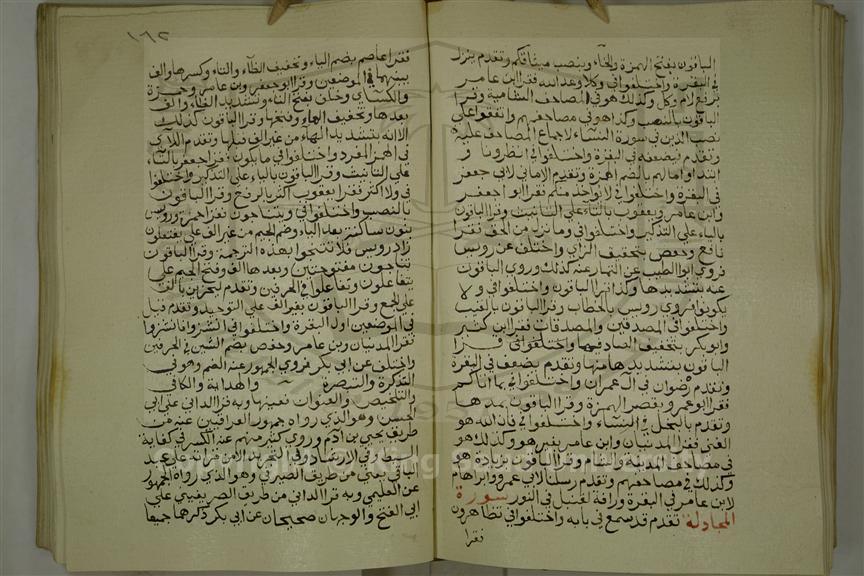 الباقون بفتح الهمزة والخاء وبنصب ميثاقكم وتقدم ينزل
في البقرة واختلفوا في وكلا وعد الله فقرا ابن عامر
برفع لام وكل وكذلك هو في المصاحف الشامية وقرا
الباقون بالنصب وكذا هو في مصاحفهم واتفقوا على
نصب الذين في سورة النساء لاجماع المصاحف عليه
وتقدم فيضعفه في البقرة واختلفوا في انظرونا و
ابتدا وامالهم بالضم الهمزة وتقدم الاماني لابي جعفر
في البقرة واختلفوا في لا يوخذ منكم فقرا ابو جعفر
وابن عامر ويعقوب بالتاء على التانيث وقرا الباقون
بالياء على التذكير واختلفوا في وما نزل من الحق فقرا
نافع وحفص بتخفيف الزاي واختلف عن رويس
فروى ابو الطيب عن التمار عنه كذلك وروى الباقون
عنه بتشديدها وكذا قرا الباقون واختلفوا في ولا
يكونوا فروى رويس بالخطاب وقرا الباقون بالغيب
واختلفوا في المصدقين والمصدقات فقرا ابن كثير
وابو بكر بتخفيف الصاد فيهما واختلفوا في قرا
الباقون بتشديدها منهما وتقدم يضعف في البقرة
وتقدم رضوان في ال عمران واختلفوا في بما اتاكم
فقرا ابو عمرو بقصر الهمزة وقرا الباقون بمدها
وتقدم بالبخل في النساء واختلفوا في فان الله هو
الغنى فقرا المدنيان وابن عامر بغير هو وكذلك هو
في مصاحف المدينة والشام وقرا الباقون بزيادة هو
وكذلك في مصاحفهم وتقدم رسلنا لابي عمرو وابراهام
لابن عامر في البقرة ورافة لقنبل في النور سورة
المجادلة تقدم قد سمع في بابه واختلفوا في يظاهرون
فقرا
١٦٢
فقرا عاصم بضم الياء وتخفيف الظاء والهاء وكسرها والف
بينهما في الموضعين وقرا ابو جعفر وابن عامر وحمزة
والكسائي وخلف بفتح الياء وتشديد الظاء والف
بعدها وتخفيف الهاء وفتحها وقرا الباقون كذلك
الا انه بتشديد الهاء من غير الف قبلها وتقدم اللاي
في الهمز المفرد واختلفوا في ما يكون فقرا ابو جعفر بالتاء
على التانيث وقرا الباقون بالياء على التذكير واختلفوا
في ولا اكثر فقرا يعقوب اكثر بالرفع وقرا الباقون
بالنصب واختلفوا في ويتناجون فقرا حمزة ورويس
بنون ساكنة بعد الياء وضم الجيم من غير الف على يفتعلون
زاد رويس فلا تنتجوا بهذه الترجمة وقرا الباقون
بتاء ونون مفتوحتين وبعدها الف وفتح الجيم على
يتفاعلون وتفاعلوا في الحرفين وتقدم ليحزن بالف
على الجمع وقرا الباقون بغير الف على التوحيد وتقدم قيل
في الموضعين اول البقرة واختلفوا في انشزوا فانشزوا
فقرا المدنيان وابن عامر وحفص بضم الشين في الحرفين
واختلف عن ابي بكر فروى الجمهور عنه الضم وهو في
التذكرة والتبصرة والهداية والكافي
والتلخيص والعنوان وغيرها وبه قرا الداني على ابي
الحسن وهو الذي رواه جمهور العراقيين عنه من
طريق يحيى بن ادم وروى كثير منهم عنه الكسر في كفاية
السبط وفي الارشاد وفي التجريد الا من قراته على عبد
الباقي يعني من طريق الصريفيني وهو الذي رواه الجمهور
عن العليمي وبه قرا الداني من طريق الصريفيني على
ابي الفتح والوجهان صحيحان عن ابي بكر ذكرهما جميعا